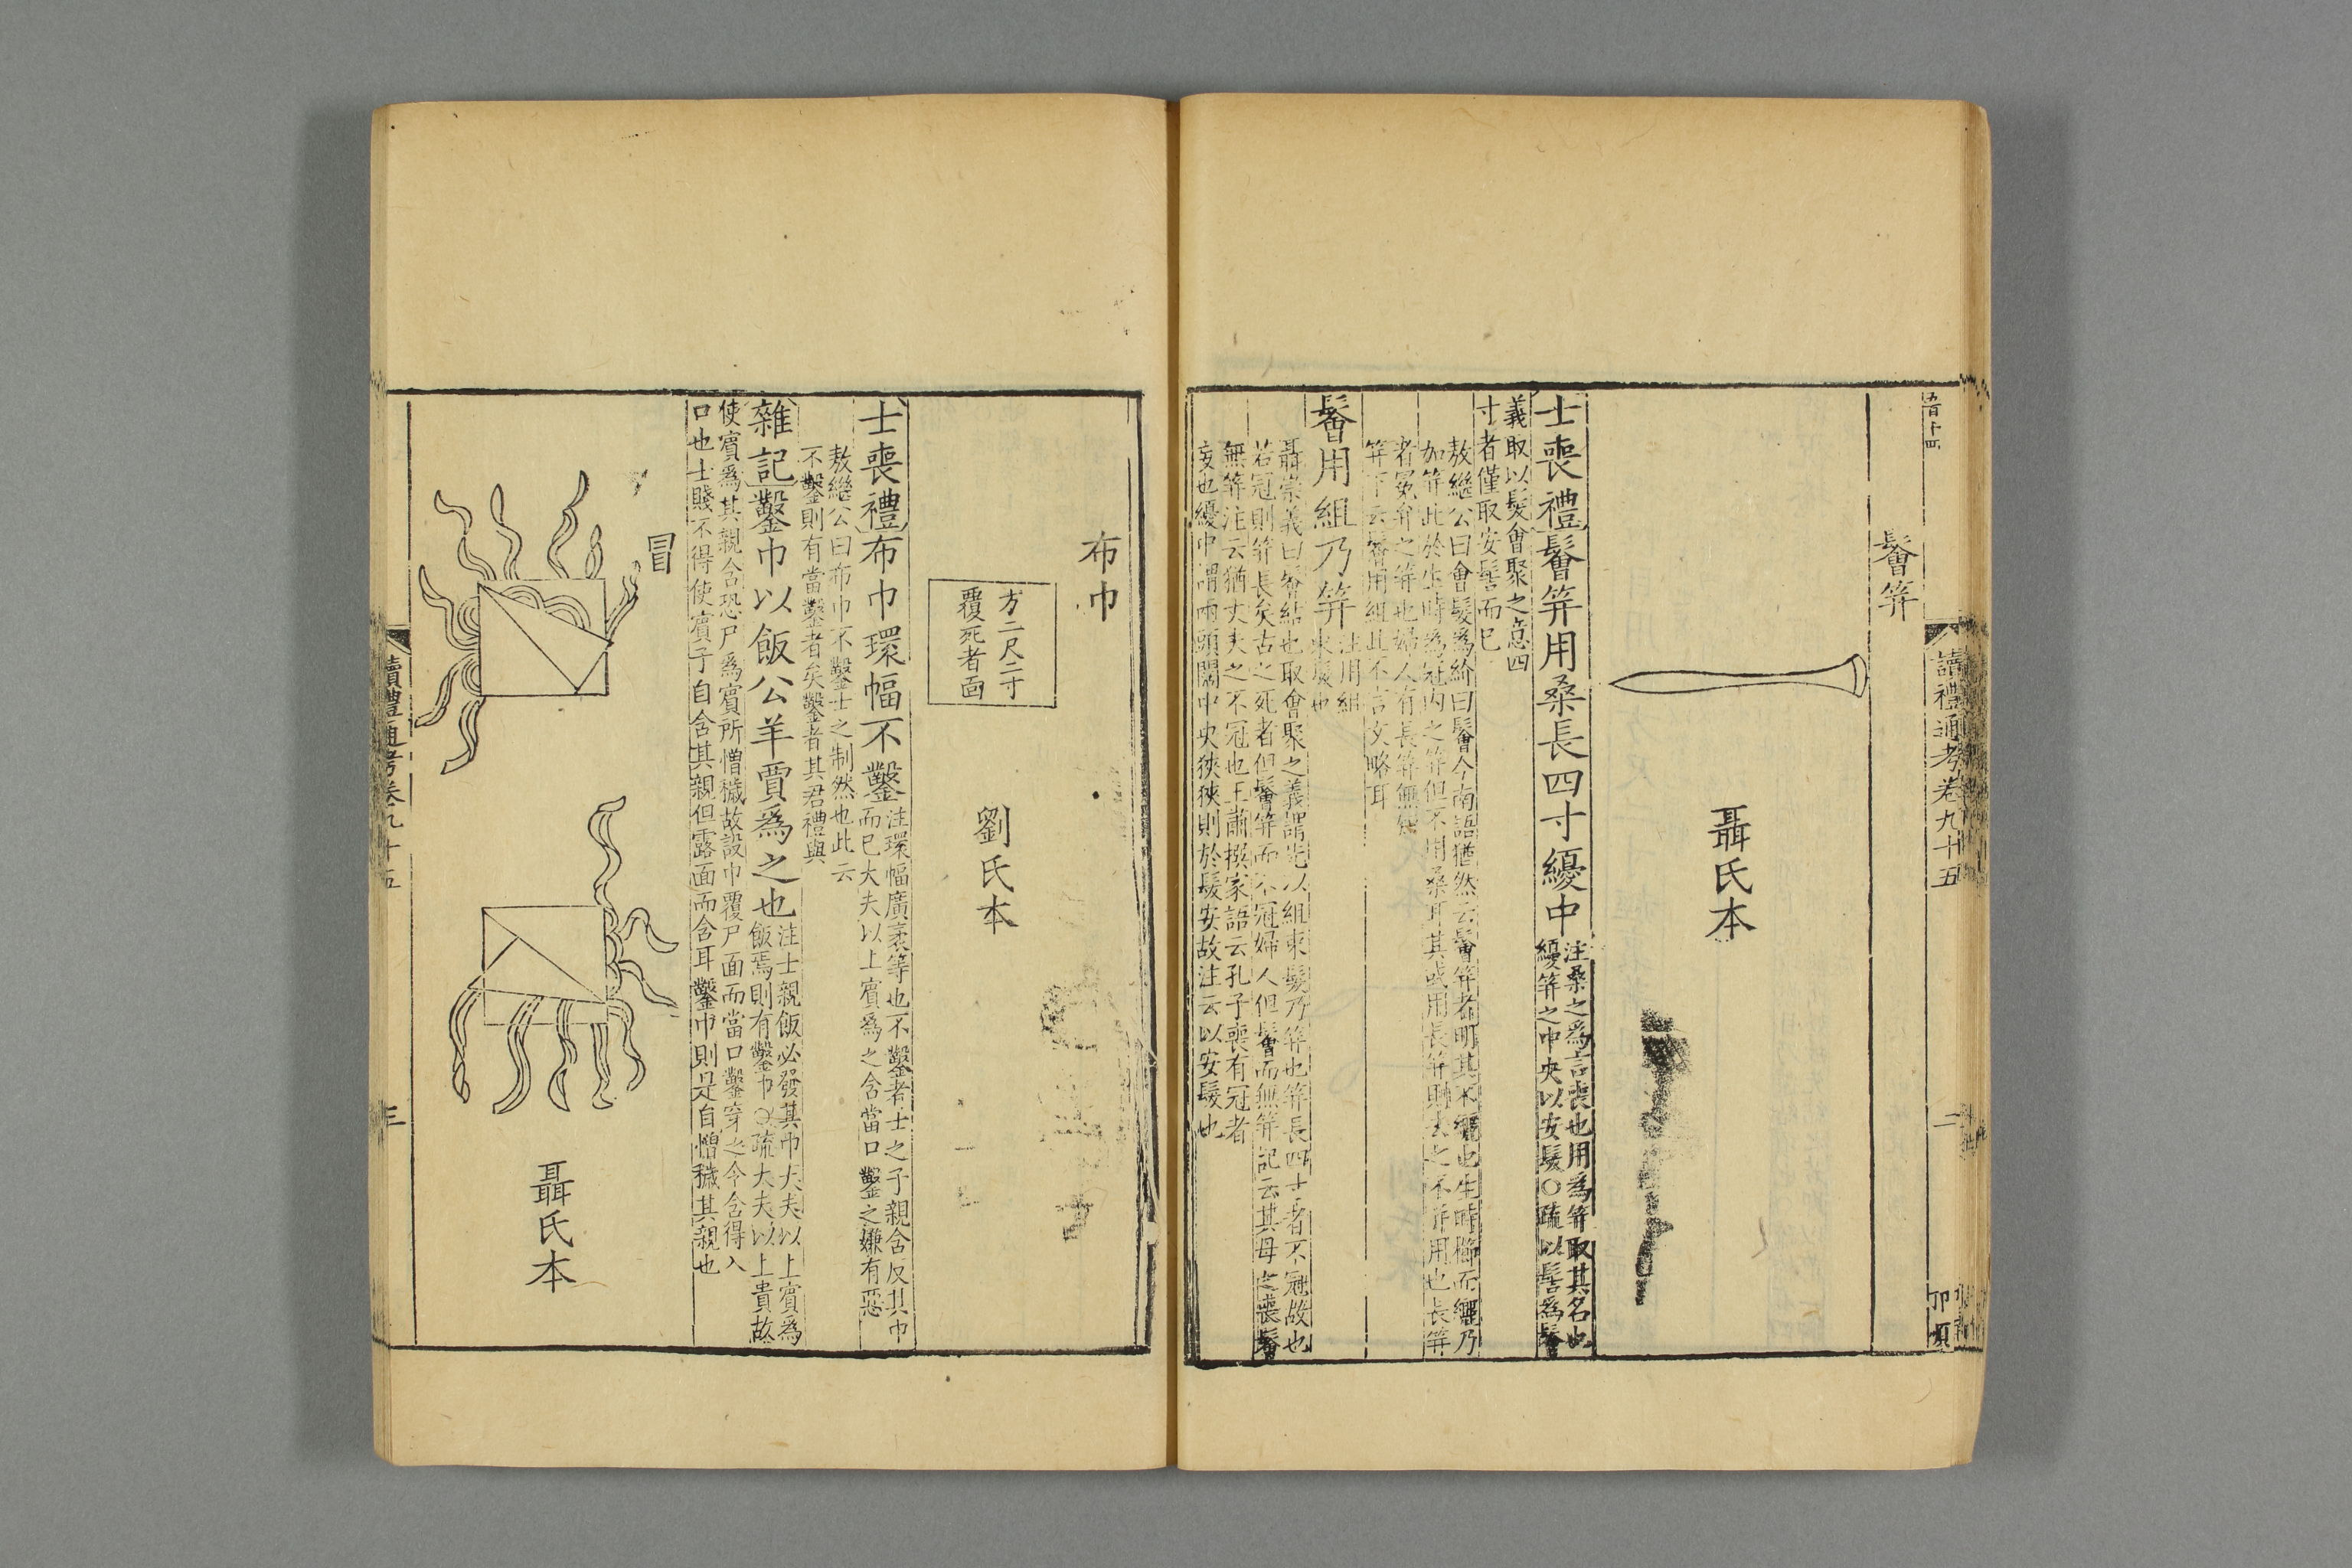 讀禮通考卷九十五
二
鬠笄
聶氏本
士喪禮鬠笄用桑長四寸纋中
注桑之爲言喪也用爲笄取其名也
纋笄之中央以安髮○疏以髻爲鬠
義取以髮會聚之意四
寸者僅取安髻而已
敖繼公曰會髮爲紒曰鬠今南語猶然云鬠笄者明其不纚也生時櫛而纚乃
加笄此於生時爲冠內之笄但不用桑耳其或用長笄則去之不并用也長笄
者冕弁之笄也婦人有長笄無
笄下云鬠用組此不言文略耳
鬠用組乃笄
注用組
束髮也
聶崇義曰鬠結也取會聚之義謂先以組束髮乃笄也笄長四寸者不冠故也
若冠則笄長矣古之死者但鬠笄而不冠婦人但鬠而無笄記云其母之喪鬠
無笄注云猶丈夫之不冠也王肅撰家語云孔子喪有冠者
妄也纋中謂兩頭闊中央狹狹則於髮安故注云以安髮也
布巾
方二尺二寸
覆死者面
劉氏本
士喪禮布巾環幅不鑿
注環幅廣袤等也不鑿者士之子親含反其巾
而已大夫以上賓爲之含當口鑿之嫌有惡
敖繼公曰布巾不鑿士之制然也此云
不鑿則有當鑿者矣鑿者其君禮與
雜記鑿巾以飯公羊賈爲之也
注士親飯必發其巾大夫以上賓爲
飯焉則有鑿巾○疏大夫以上貴故
使賓爲其親含恐尸爲賓所憎穢故設巾覆尸面而當口鑿穿之令含得入
口也士賤不得使賓子自含其親但露面而含耳鑿巾則是自憎穢其親也
冒
聶氏本
讀禮通考卷九十五
三